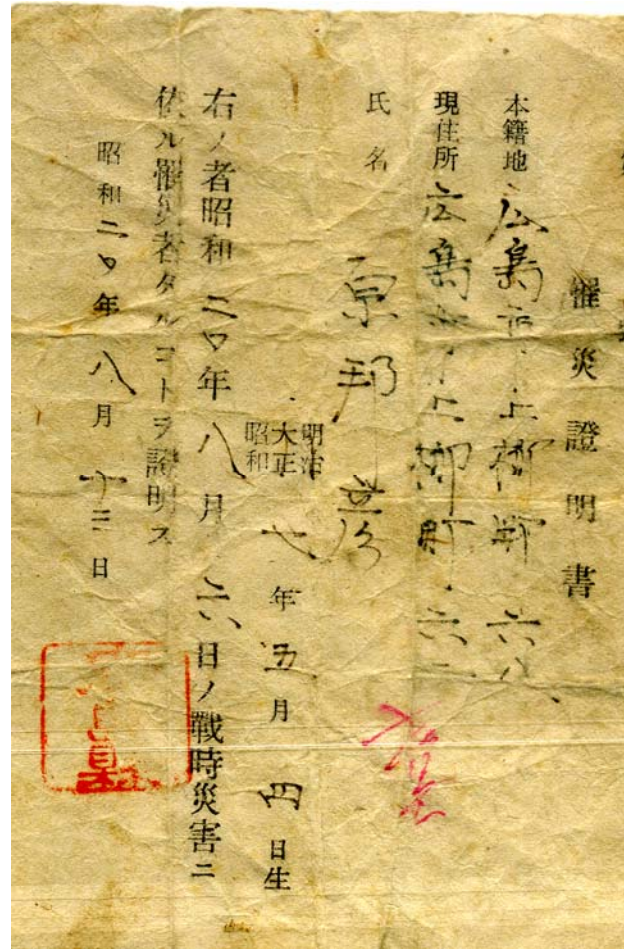 罹災證明書
本籍地 広島市上柳町 六八
現住所 広島市上柳町 六二
氏名 原邦
明治 大正 昭和 七年五月四日生
右ノ者昭和二〇年八月六日ノ戰時災害ニ
依ル罹災者タルコトヲ證明ス
昭和二〇年八月十三日